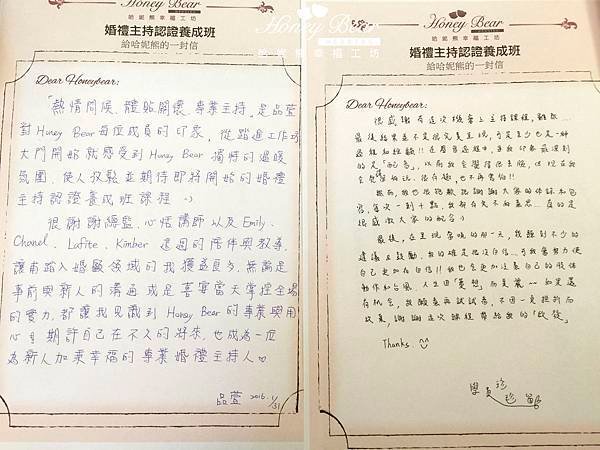 Honey Bear
哈妮熊幸福工坊
婚禮主持認證養成班
給哈妮熊的一封信
Dear Honeybear:
「熱情問候、體貼關懷、專業主持」是品萱
對Honey Bear每位成員的印象，從踏進工作坊
大門開始就感受到Honey Bear獨特的溫暖
氛圍，使人放鬆並期待即將開始的婚禮
主持認證養成班課程 :)
很謝謝總監、心恬講師以及Emily、
Chanel、Lafite、Kimber 這週的陪伴與教導，
讓甫踏入婚顧領域的我獲益良多，無論是
事前與新人的溝通或是喜宴當天掌控全場
的實力，都讓我見識到Honey Bear的專業與用
心！期許自己在不久的將來，也成為一位
為新人加乘幸福的專業婚禮主持人♡
品萱 2016. 1/31
Honey Bear
哈妮熊幸福工坊
婚禮主持認證養成班
給哈妮熊的一封信
Dear Honeybear:
很感謝有這次機會上主持課程，雖然
最後結果並不是很完美呈現，可是至少也是一種
的是「配音」，以前我會覺得很丟臉，但現在我
害，每次一到十點，我都有欠不的意思...真的是
很感激大家的配合:)
最後，在呈現當晚的那一天，我聽到不少的
建議及鼓勵，我的確是很沒自信，可我會努力使
自己更加有自信!!我也會更加注意自己的肢體
動作和台風，人生因「夢想」而美麗～如果還
有機會，我願意再試試看，不因一支挫折而
放棄，謝謝這次課程帶給我的「啟發」
Thanks.
學員
珍
Honey Bear
哈妮熊幸福工坊